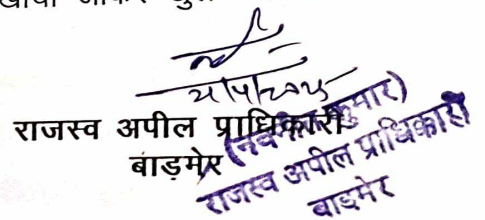 जाकर
राजस्व अपील प्राधिकारी
बाड़मेर
(नवनीत कुमार)
राजस्व अपील प्राधिकारी
बाड़मेर